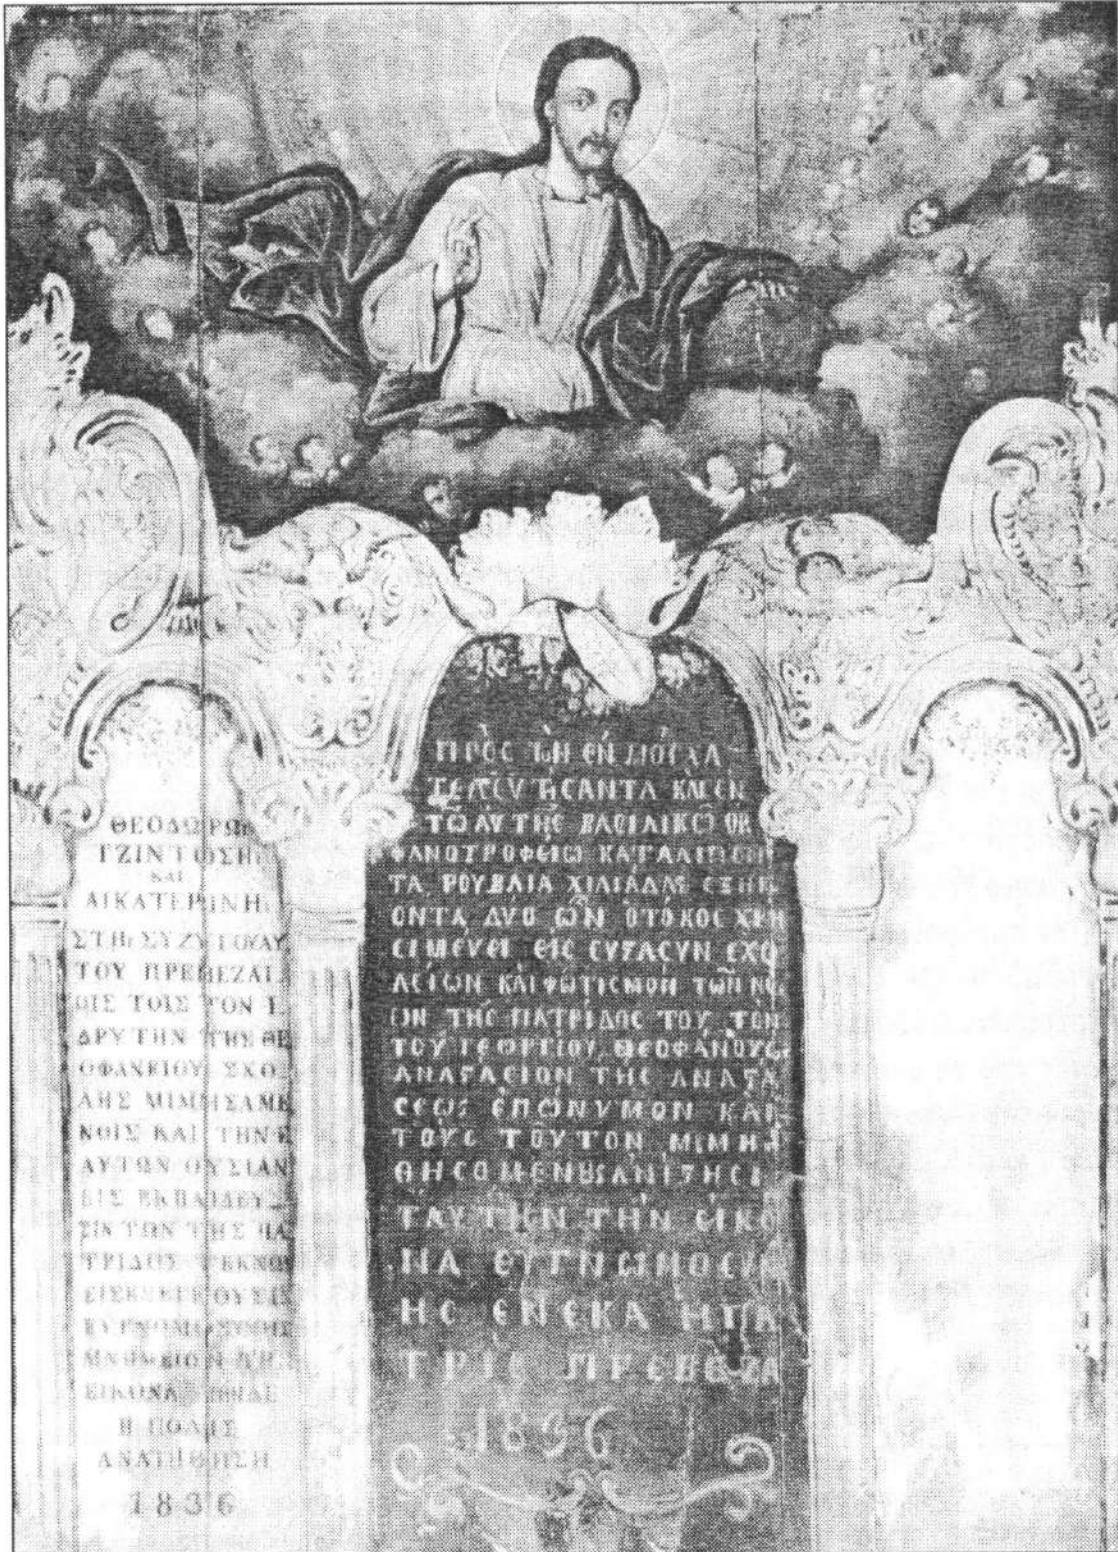 ΘΕΟΔΩΡΩ
ΤΖΙΝΤΩΣΗ
ΚΑΙ
ΑΙΚΑΤΕΡΙΝΗ
ΣΤΗ ΣΥΖΥΓΟΥΑΥ
ΤΟΥ ΠΡΕΒΕΖΑΙ
ΟΙΣ ΤΟΙΣ ΤΟΝ Ι
ΔΡΥΤΗΝ ΤΗΣ ΘΕ
ΟΦΑΝΕΙΟΥ ΣΧΟ
ΛΗΣ ΜΙΜΗΣΑΜΕ
ΝΟΙΣ ΚΑΙ ΤΗΝ Ε
ΑΥΤΩΝ ΟΥΣΙΑΝ
ΕΙΣ ΕΚΠΑΙΔΕΥ
ΣΙΝ ΤΩΝ ΤΗΣ ΠΑ
ΤΡΙΔΟΣ ΤΕΚΝΩ
ΜΝΗΜΕΙΟΝ
ΕΙΚΟΝΑ
Η ΠΟΛΙΣ
1836
ΠΡῸΣ ΤῸΝ ἘΝ ΜΌΣΧΑ
ΚΑῚ ἘΝ
ΤΩ ΑΥΤΗΣ ΒΑΣΙΛΙΚΩ ΟΡ
ΦΑΝΟΤΡΟΦΕΙΩ ΚΑΤΑΛΙΠΟΝ
ΤΑ ΡΟΥΒΛΙΑ ΧΙΛΙΑΔΑΣ ΕΞΗΚ
ΟΝΤΑ ΔΥΟ ΩΝ Ο ΤΟΚΟΣ ΧΡΗ
ΣΙΜΕΥΕΙ ΕΙΣ ΣΥΣΑΣΥΝ ΣΧΟ
ΛΕΙΩΝ ΚΑΙ ΦΩΤΙΣΜΟΝ ΤΩΝ ΝΕ
ΩΝ ΤΗΣ ΠΑΤΡΙΔΟΣ ΤΟΥ ΤΟΝ
ΤΟΥ ΓΕΩΡΓΙΟΥ ΘΕΟΦΑΝΟΥΣ
ΑΝΑΣΑΣΙΟΝ ΤΗΣ ΑΝΑΣΑ
ΣΕΩΣ ΕΠΩΝΥΜΟΝ ΚΑΙ
ΤΟΥΣ ΤΟΥΤΟΝ ΜΙΜΗ
ΘΗΣΟΜΕΝΟΥΣ ΑΝΙΣΗΣΙ
ΤΑΥΤΗΝ ΤΗΝ ΕΙΚΟ
ΝΑ ΕΥΓΝΩΜΟΣΥΝ
ΗΣ ΕΝΕΚΑ Η ΠΑ
ΤΡΙΣ ΠΡΕΒΕΖΑ
1836